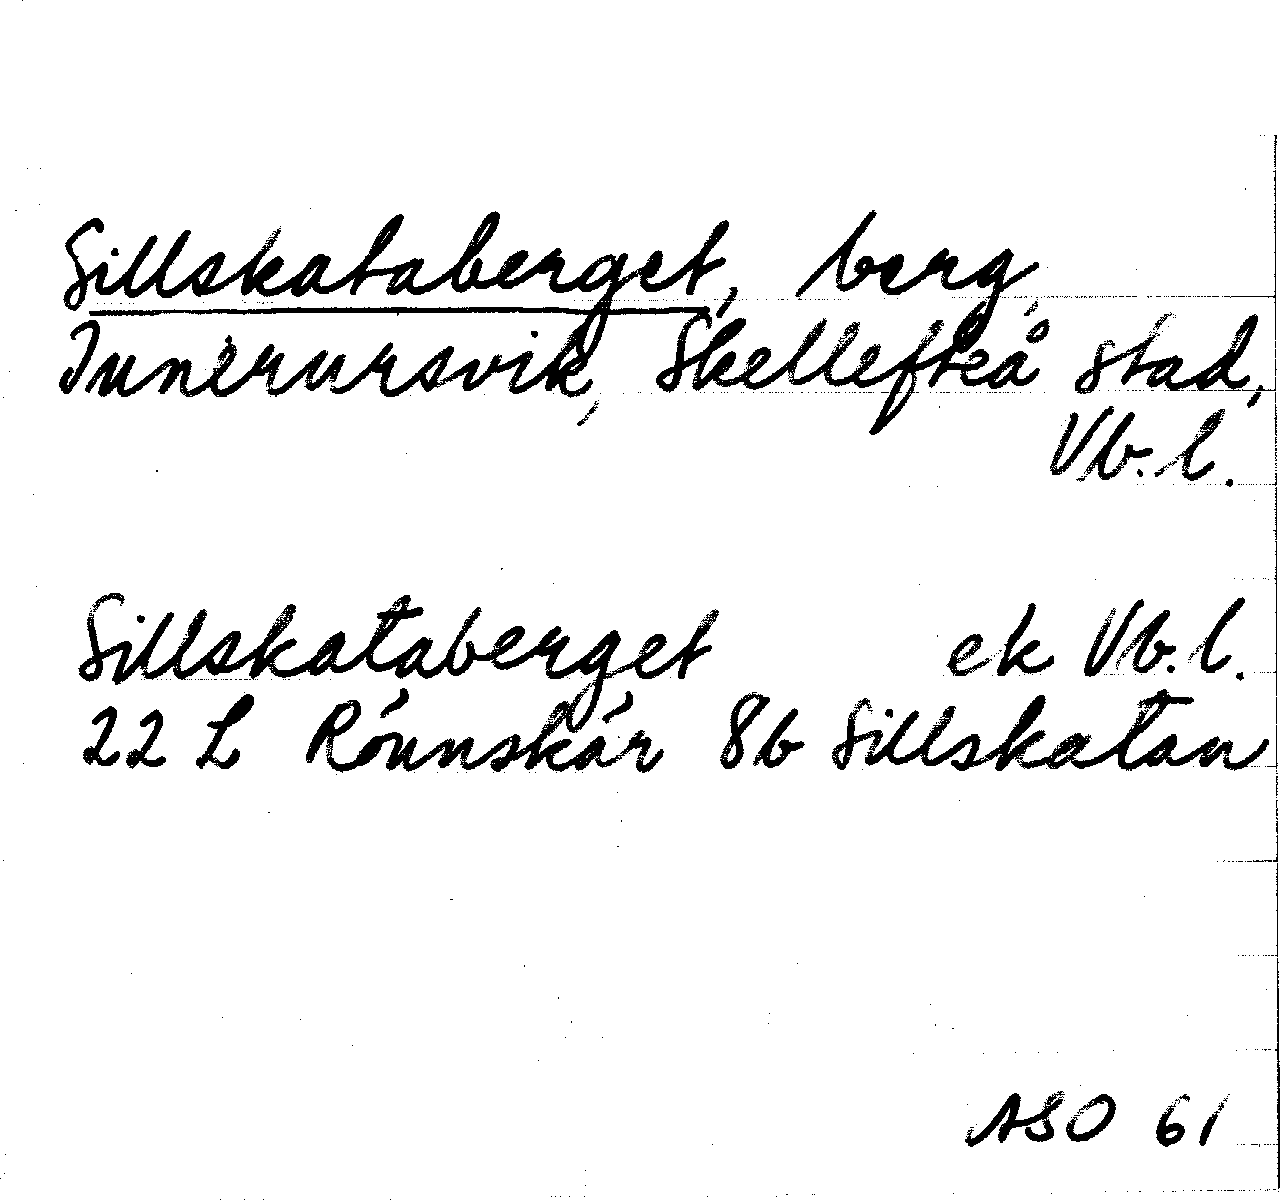 Sillskataberget, berg,
Innerursvik, Skellefteå stad,
Vb. l.
Sillskataberget ek Vb. l.
22 L Rönnskär 8b Sillskatan
ASO 61